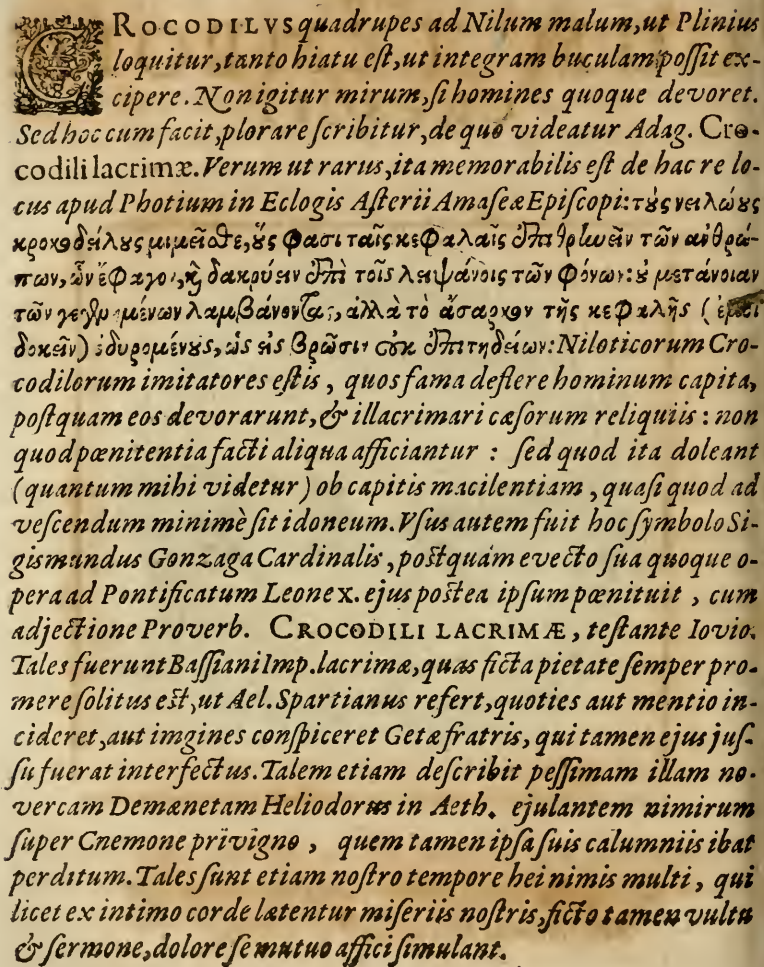 CROCODILVS quadrupes ad Nilum malum, ut Plinius
loquitur, tanto hiatu eſt, ut integram buculam poſſit ex-
cipere. Non igitur mirum, ſi homines quoque devoret.
Sed hoc cum facit, plorare ſcribitur, de quo videatur Adag. Cro-
codili lacrimæ. Verum ut rarus, ita memorabilis eſt de hac re lo-
cus apud Photium in Eclogis Aſterii Amaſeæ Epiſcopi: τȣ̀ς νειλώȣς
κροκοδείλȣς μιμεῖσθε, ȣ̔́ς φασι ταῖς κεφαλαῖς ἐπιθρίωεῖν τῶν ἀνθρώ-
πων, ὧν ἔφαγον, κὶ δακρύειν ἐπὶ τοῖς λειψάνοις τῶν φόνων: ȣ̓ μετάνοιαν
τῶν γεγενημένων λαμβάνοντας, ἀλλὰ τὸ ἄσαρκον τῆς κεφαλῆς (ἐμοὶ
δοκεῖν) ὀδυρομένȣς, ὡς εἰς βρῶσιν οὐκ ἐπιτηδείων: Niloticorum Cro-
codilorum imitatores eſtis, quos fama deflere hominum capita,
poſtquam eos devorarunt, & illacrimari cæſorum reliquiis: non
quod pœnitentia facti aliqua afficiantur: ſed quod ita doleant
(quantum mihi videtur) ob capitis macilentiam, quaſi quod ad
veſcendum minimè ſit idoneum. Vſus autem fuit hoc ſymbolo Si-
giſmundus Gonzaga Cardinalis, poſtquàm evecto ſua quoque o-
pera ad Pontificatum Leone X. ejus poſtea ipſum pœnituit, cum
adjectione Proverb. CROCODILI LACRIMÆ, teſtante Iovio.
Tales fuerunt Baſſiani Imp. lacrimæ, quas ficta pietate ſemper pro-
mere ſolitus eſt, ut Ael. Spartianus refert, quoties aut mentio in-
cideret, aut imgines conſpiceret Getæ fratris, qui tamen ejus juſ-
ſu fuerat interfectus. Talem etiam deſcribit peſſimam illam no-
vercam Demænetam Heliodorus in Aeth. ejulantem nimirum
ſuper Cnemone privigno, quem tamen ipſa ſuis calumniis ibat
perditum. Tales ſunt etiam noſtro tempore hei nimis multi, qui
licet ex intimo corde lætentur miſeriis noſtris, ficto tamen vultu
& ſermone, dolore ſe mutuo affici ſimulant.